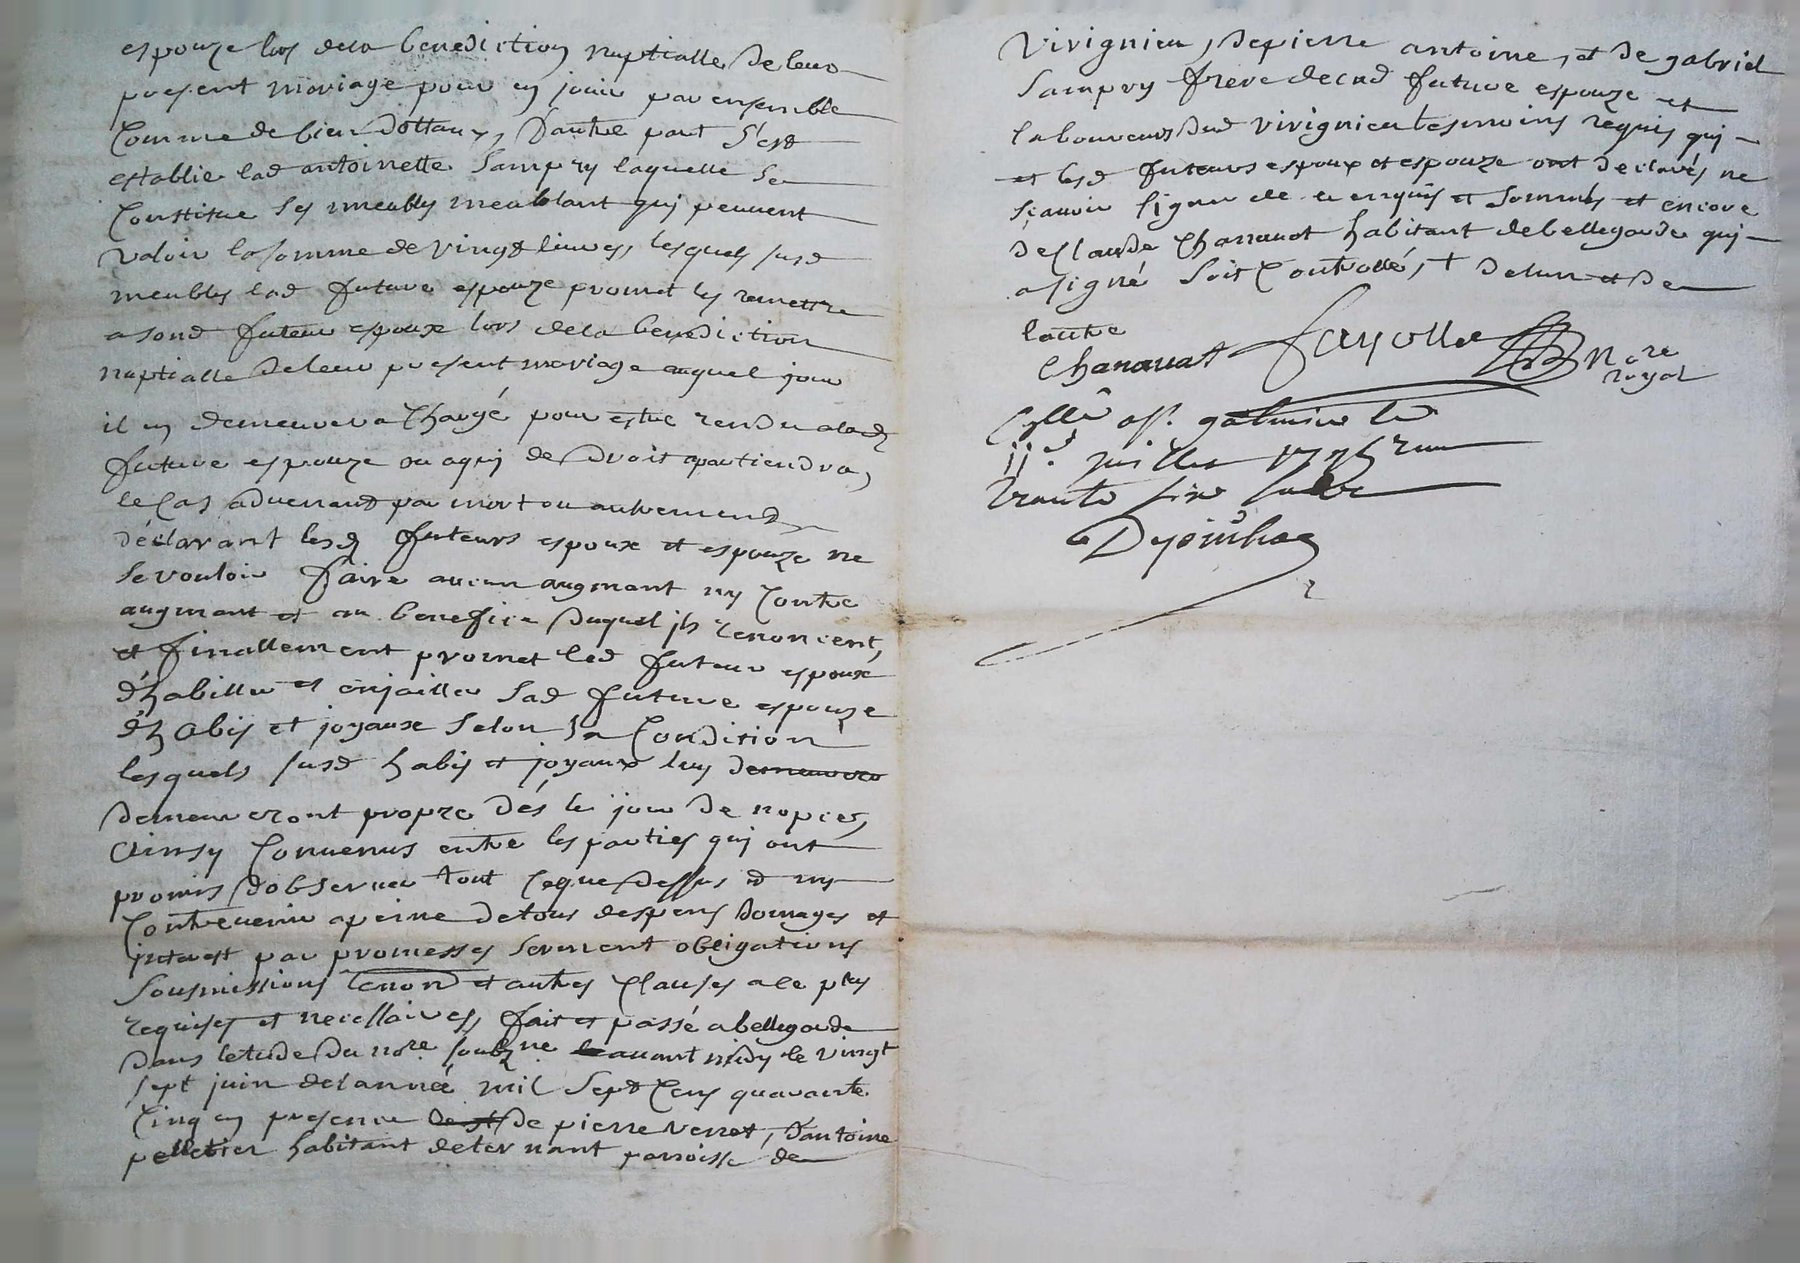 espouze lors dela benediction nuptialle de leur
present mariage pour en jouir par ensemble
Comme de bien dottaux, Dautre part S'est
establie lad antoinette Sampry laquelle se
Constitue ses meubles meublant qui peuvent
valoir la somme de vingt livres, lesquels susd
meubles lad future espouze promet les remettre
a sond futeur espoux lors dela benediction
nuptialle de leur present mariage auquel jour
il en demeurera Chargé pour estre rendu a lad
future espouze ou a qui de droit apartiendra,
le Cas advenant par mort ou autrement
déclarant lesd futeurs espoux et espouze ne
se vouloir faire aucun augmant ny Contre
augmant et au benefice duquel ils renoncent,
et finallement promet led futeur espoux
d'habiller et enjoailler sad future espouze
d'habis et joyaux selon sa Condition
lesquels susd habis et joyaux luy demeurero
demeureront propre dés le jour de nopces,
Ainsy Convenus entre les parties qui ont
promis d'observer tout Ceque dessus et ny
Contrevenir a peine de tous despens domages et
interest par promesses serment obligations
Sousmissions renond et autres Clauses a ce plus
requises et necessaires, fait et passé a bellegarde
dans letude du nore soubz ne avant midy le vingt
sept juin de lannée mil Sept Cens quarante
Cinq en presence de pierre verret, d'antoine
pelletier habitant de ternant parroisse de
Virignieu, de pierre antoine, et de gabriel
Sampry frere de lad future espouze et
laboureurs dud virignieu tesmoins requis qui
et lesd futeurs espoux et espouze ont declarés ne
sçavoir signer de ce enquis et sommés et encore
de Claude Charanat habitant de bellegarde qui
a signé soit Controllé, + de lun et de
lautre
Charanat fayolle Nore
royal
Cllé a St. galmier le
11e juillet 1745 reçu
trante six sols